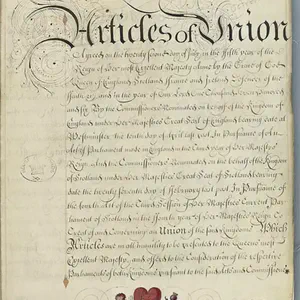 Articles of Union
Agreed on the twenty second Day of July, in the Fifth year of the
Reign of Her most Excellent Majesty Anne by the Grace of God
Queen of England, Scotland, France and Ireland Defender of the
Faith &c. and in the year of Our Lord One thousand seven hundred
and six. By the Commissioners Nominated on behalf of the Kingdom of
England under Her Majesties Great Seal of England bearing date at
Westminster the tenth day of April last past In Pursuance of an
Act of Parliament made in England in the third year of Her Majesties
Reign And the Commissioners Nominated on the behalf of the Kingdom
of Scotland under Her Majesties Great Seal of Scotland bearing
date the twenty seventh day of February last past In Pursuance of
the fourth Act of the third Session of the Current Parlia-
ment of Scotland in the year of Her Majesties Reign To
Treat of and Concerning an Union of the said Kingdoms Which
Articles are in all humility to be presented to the Queens most
Excellent Majesty, and offered to the Consideration of the respective
Parliaments of both Kingdoms pursuant to the said Acts and Commissions